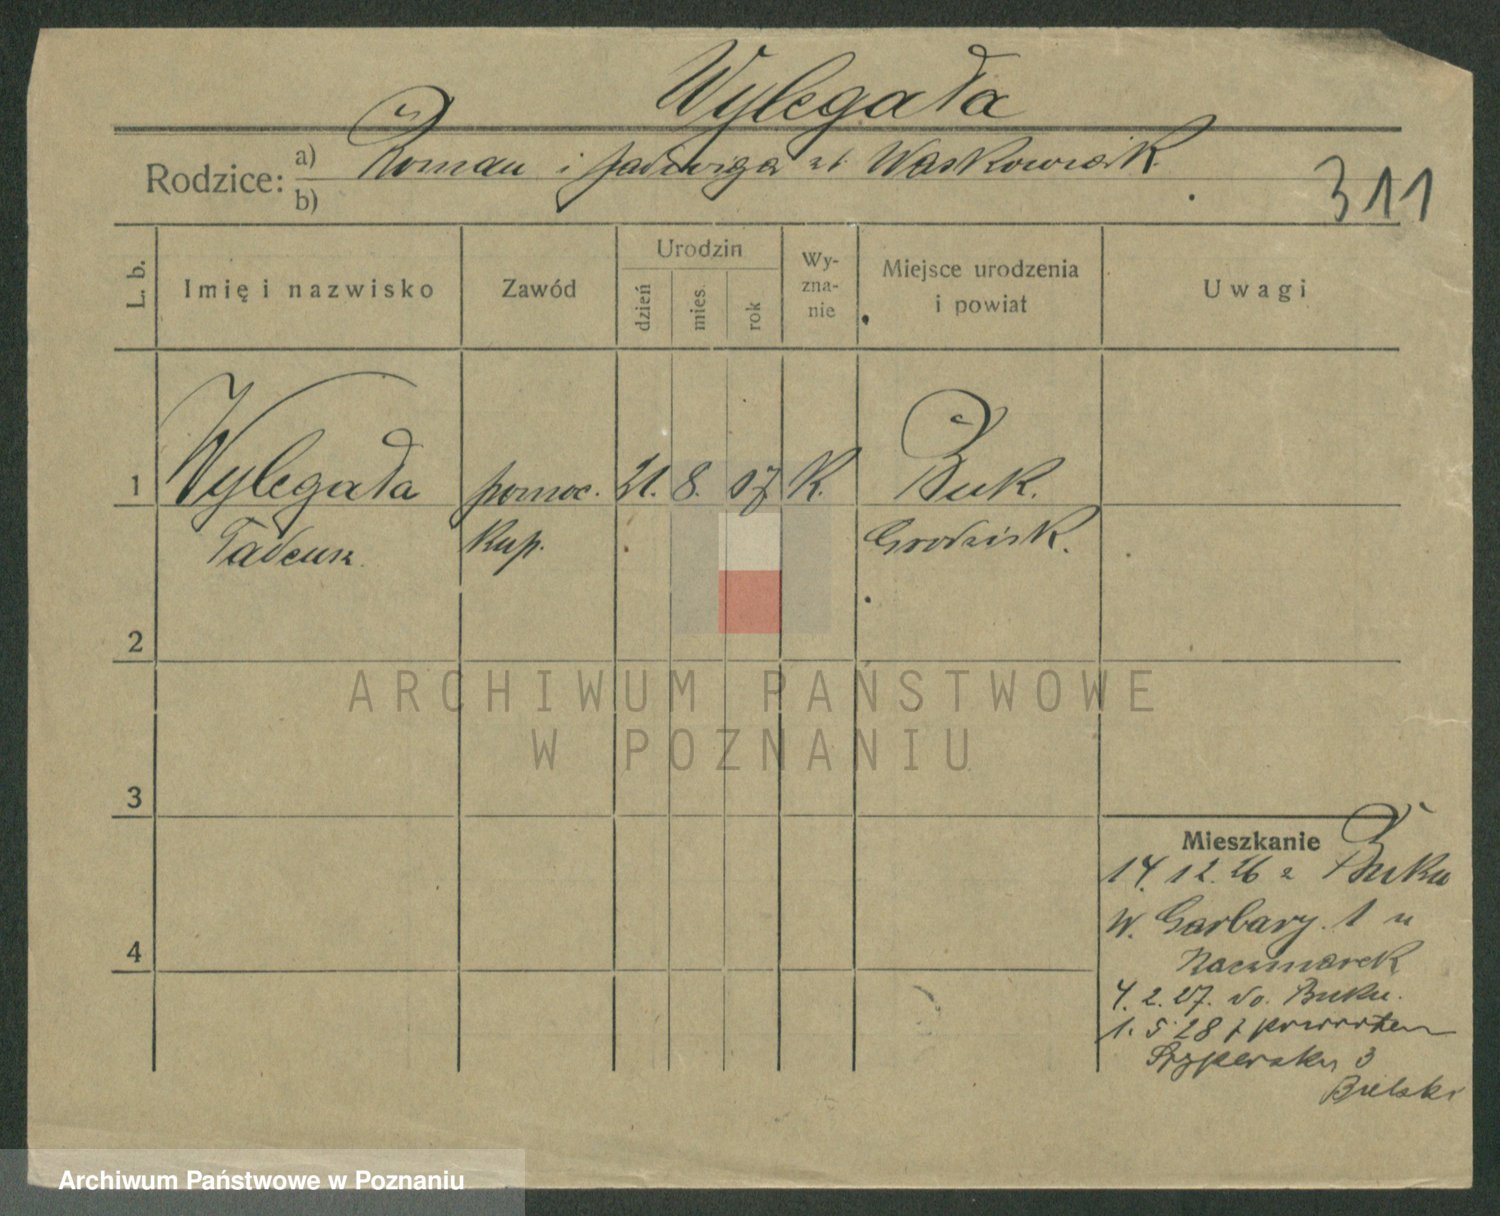 Wylegała
Rodzice: a) Roman i Jadwiga zd. Waskowiak
b)
311
L. b.
Imię i nazwisko
Zawód
Urodzin
dzień
mies.
rok
Wy-
zna-
nie
Miejsce urodzenia
i powiat
Uwagi
1
Wylegała pomoc. 21. 8. 07 K. Buk.
Tadeusz. kup. Grodzisk.
2
ARCHIWUM PAŃSTWOWE
W POZNANIU
3
Mieszkanie
14. 12. 26 z Buku
W. Garbary. 1 u
Kaczmarek
4. 2. 27. do. Buku.
1. 5 28 z powrotem
Szyperska 3
Bielski
4
Archiwum Państwowe w Poznaniu